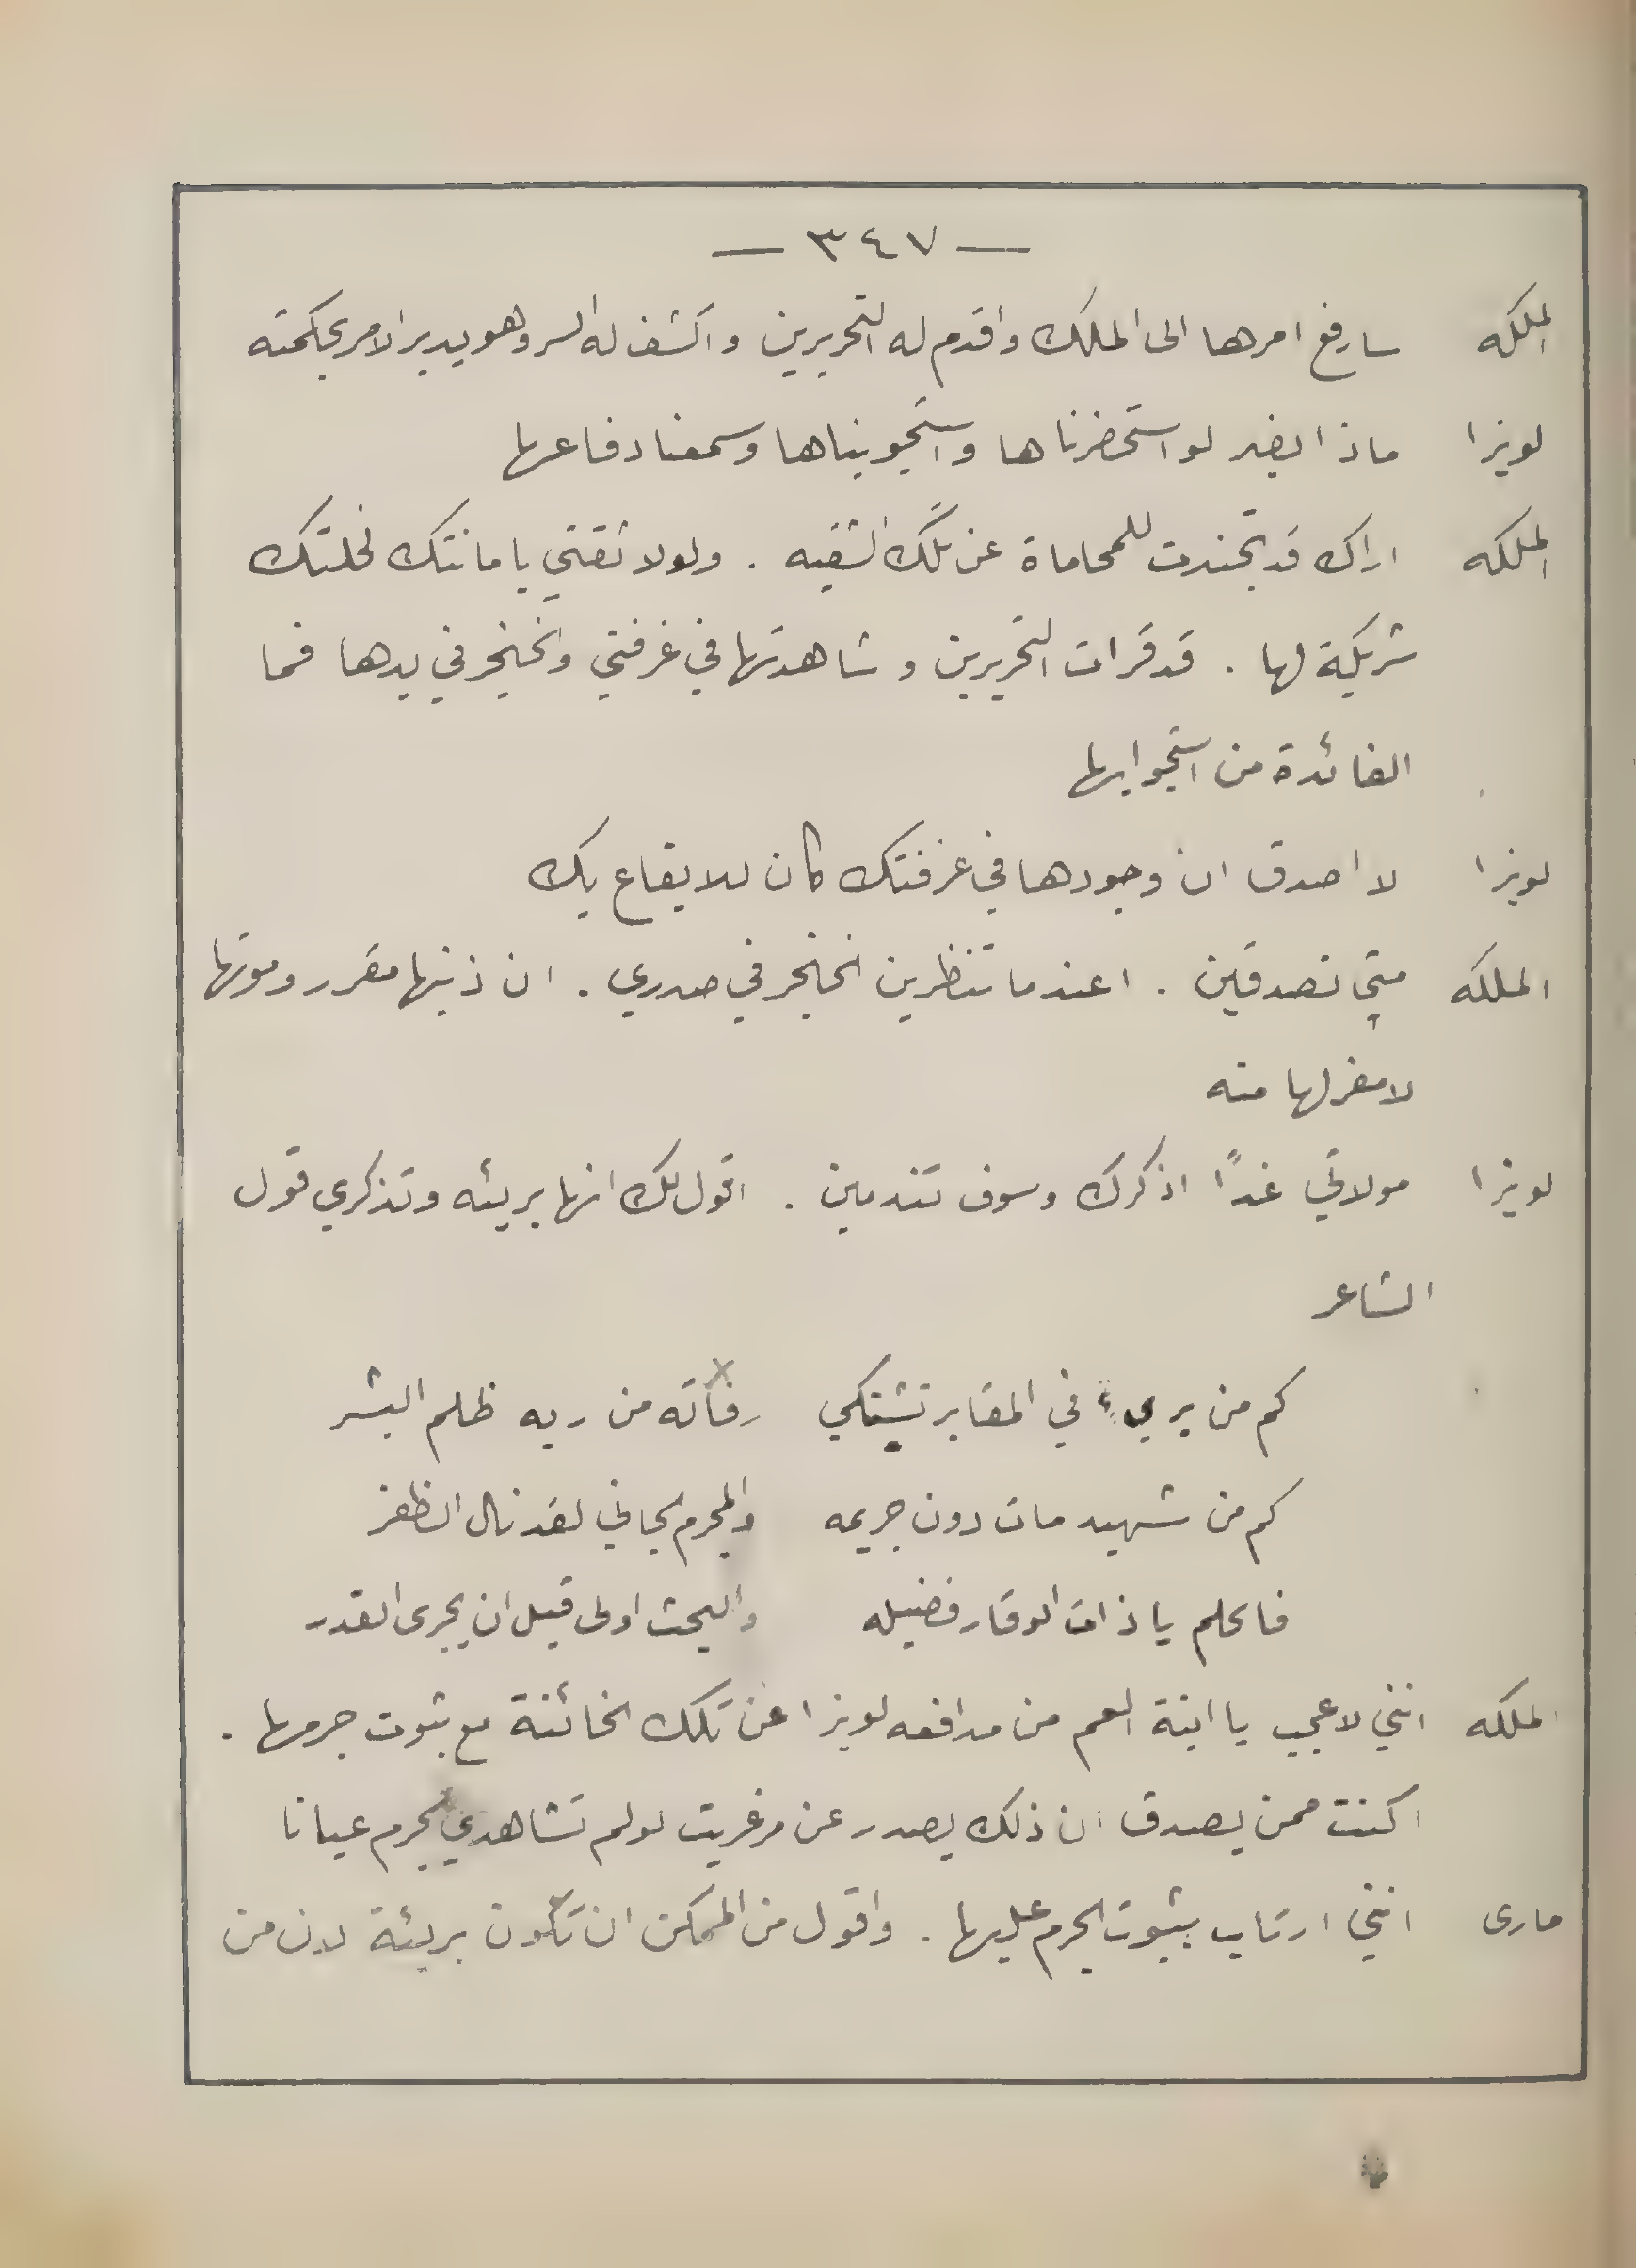 — ٣٤٧ —
الملكه سارفع امرها الى الملك واقدم له التحريرين واكشف له السر وهو يدبر الامر بحكمته
لويزا ماذا يضر لو استحضرناها واستجوبناها وسمعنا دفاعها
الملكه اراك قد تجندت للمحاماة عن تلك الشقيه . ولولا ثقتي بامانتك لخلتك
شريكة لها . قد قرات التحريرين وشاهدتها في غرفتي والخنجر في يدها فما
الفائدة من استجوابها
لويزا لا اصدق ان وجودها في غرفتك كان للايقاع بك
الملكه متى تصدقين . اعندما تنظرين الخنجر في صدري . ان ذنبها مقرر وموتها
لا مفر لها منه
لويزا مولاتي غداً اذكرك وسوف تندمين . اقول لك انها بريئه وتذكري قول
الشاعر
كم من بريء في المقابر تشتكي رفاته من ربه ظلم البشر
كم من شهيد مات دون جريمه والمجرم الجاني لقد نال الظفر
فالحلم يا ذات الوقار فضيله والبحث اولى قبل ان يجرى القدر
الملكه انني لاعجب يا ابنة العم من مدافعه لويزا عن تلك الخائنة مع ثبوت جرمها .
اكنت ممن يصدق ان ذلك يصدر عن مرغريت لو لم تشاهدي الجرم عيانا
مارى انني ارتاب بثبوت الجرم عليها . واقول من الممكن ان تكون بريئة لان من